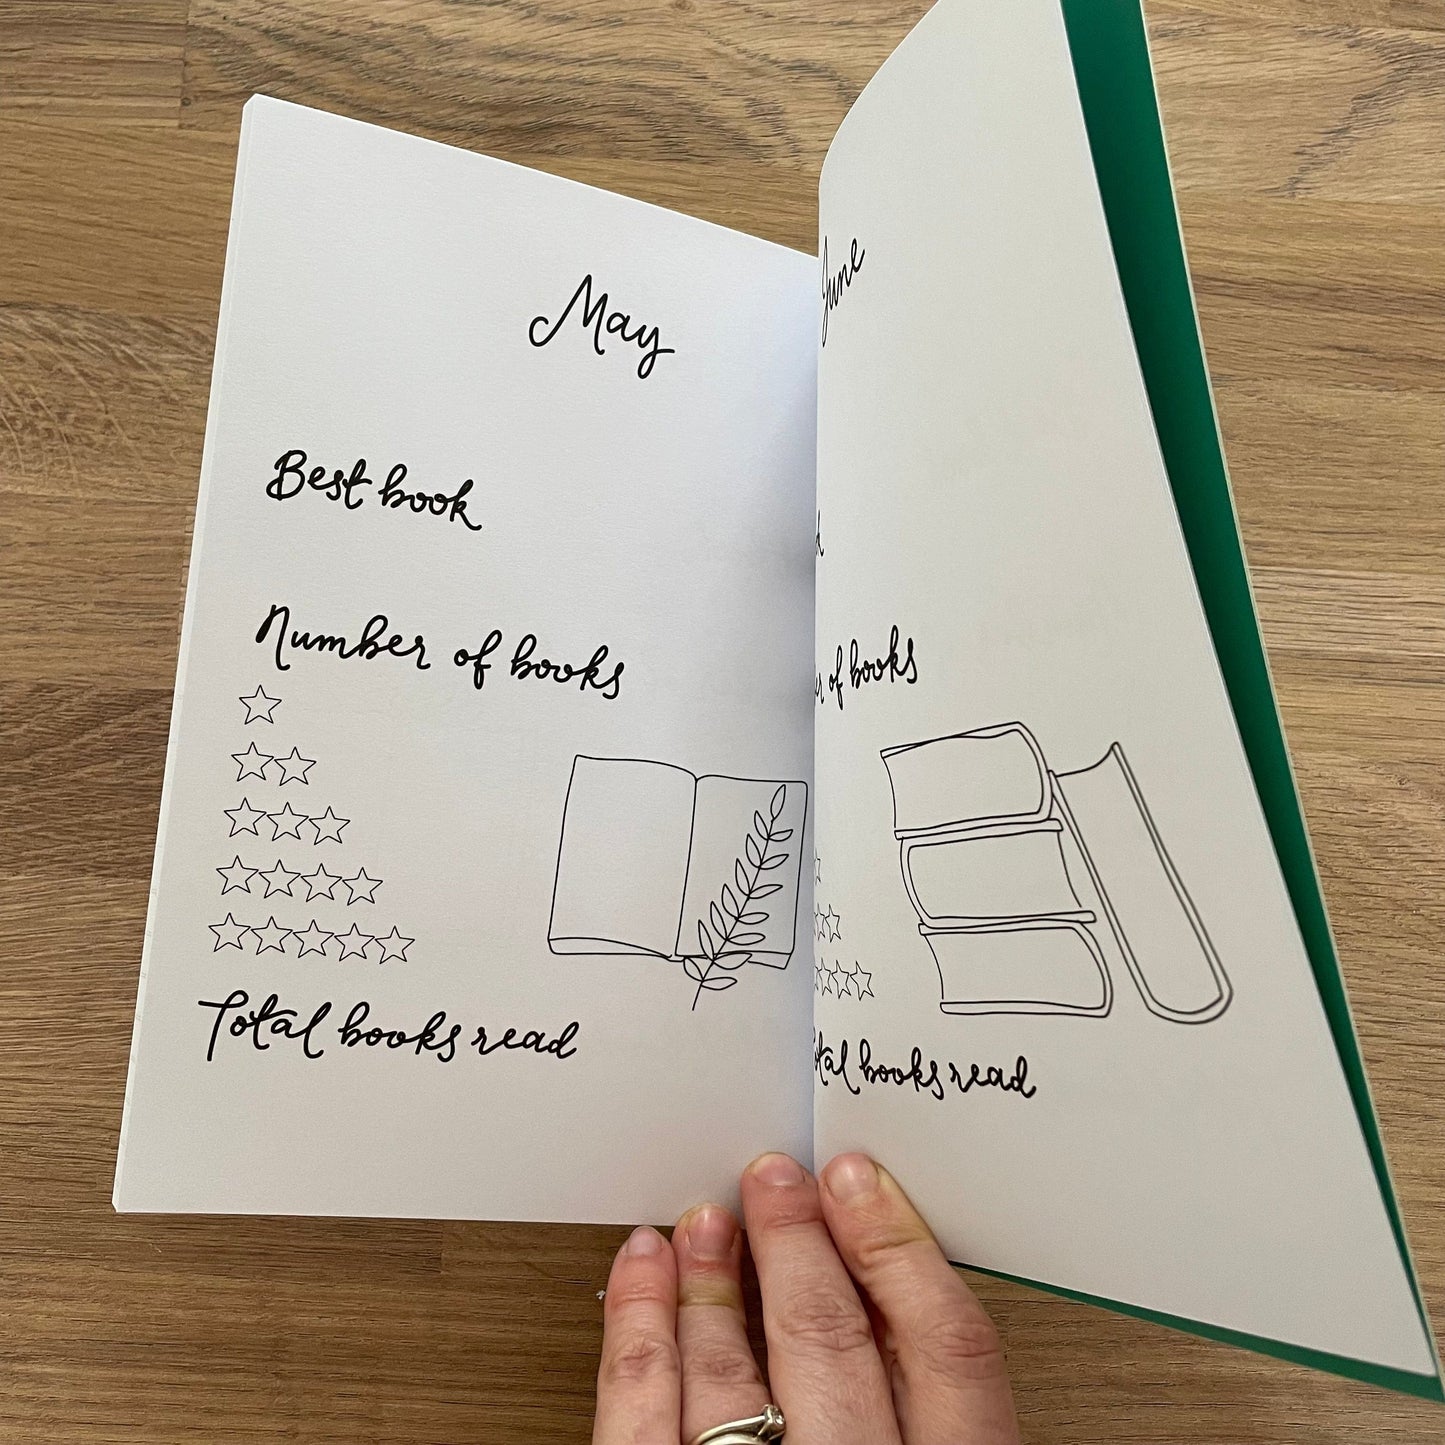 May
Best book
Number of books
Total books read
June
of books
Total books read